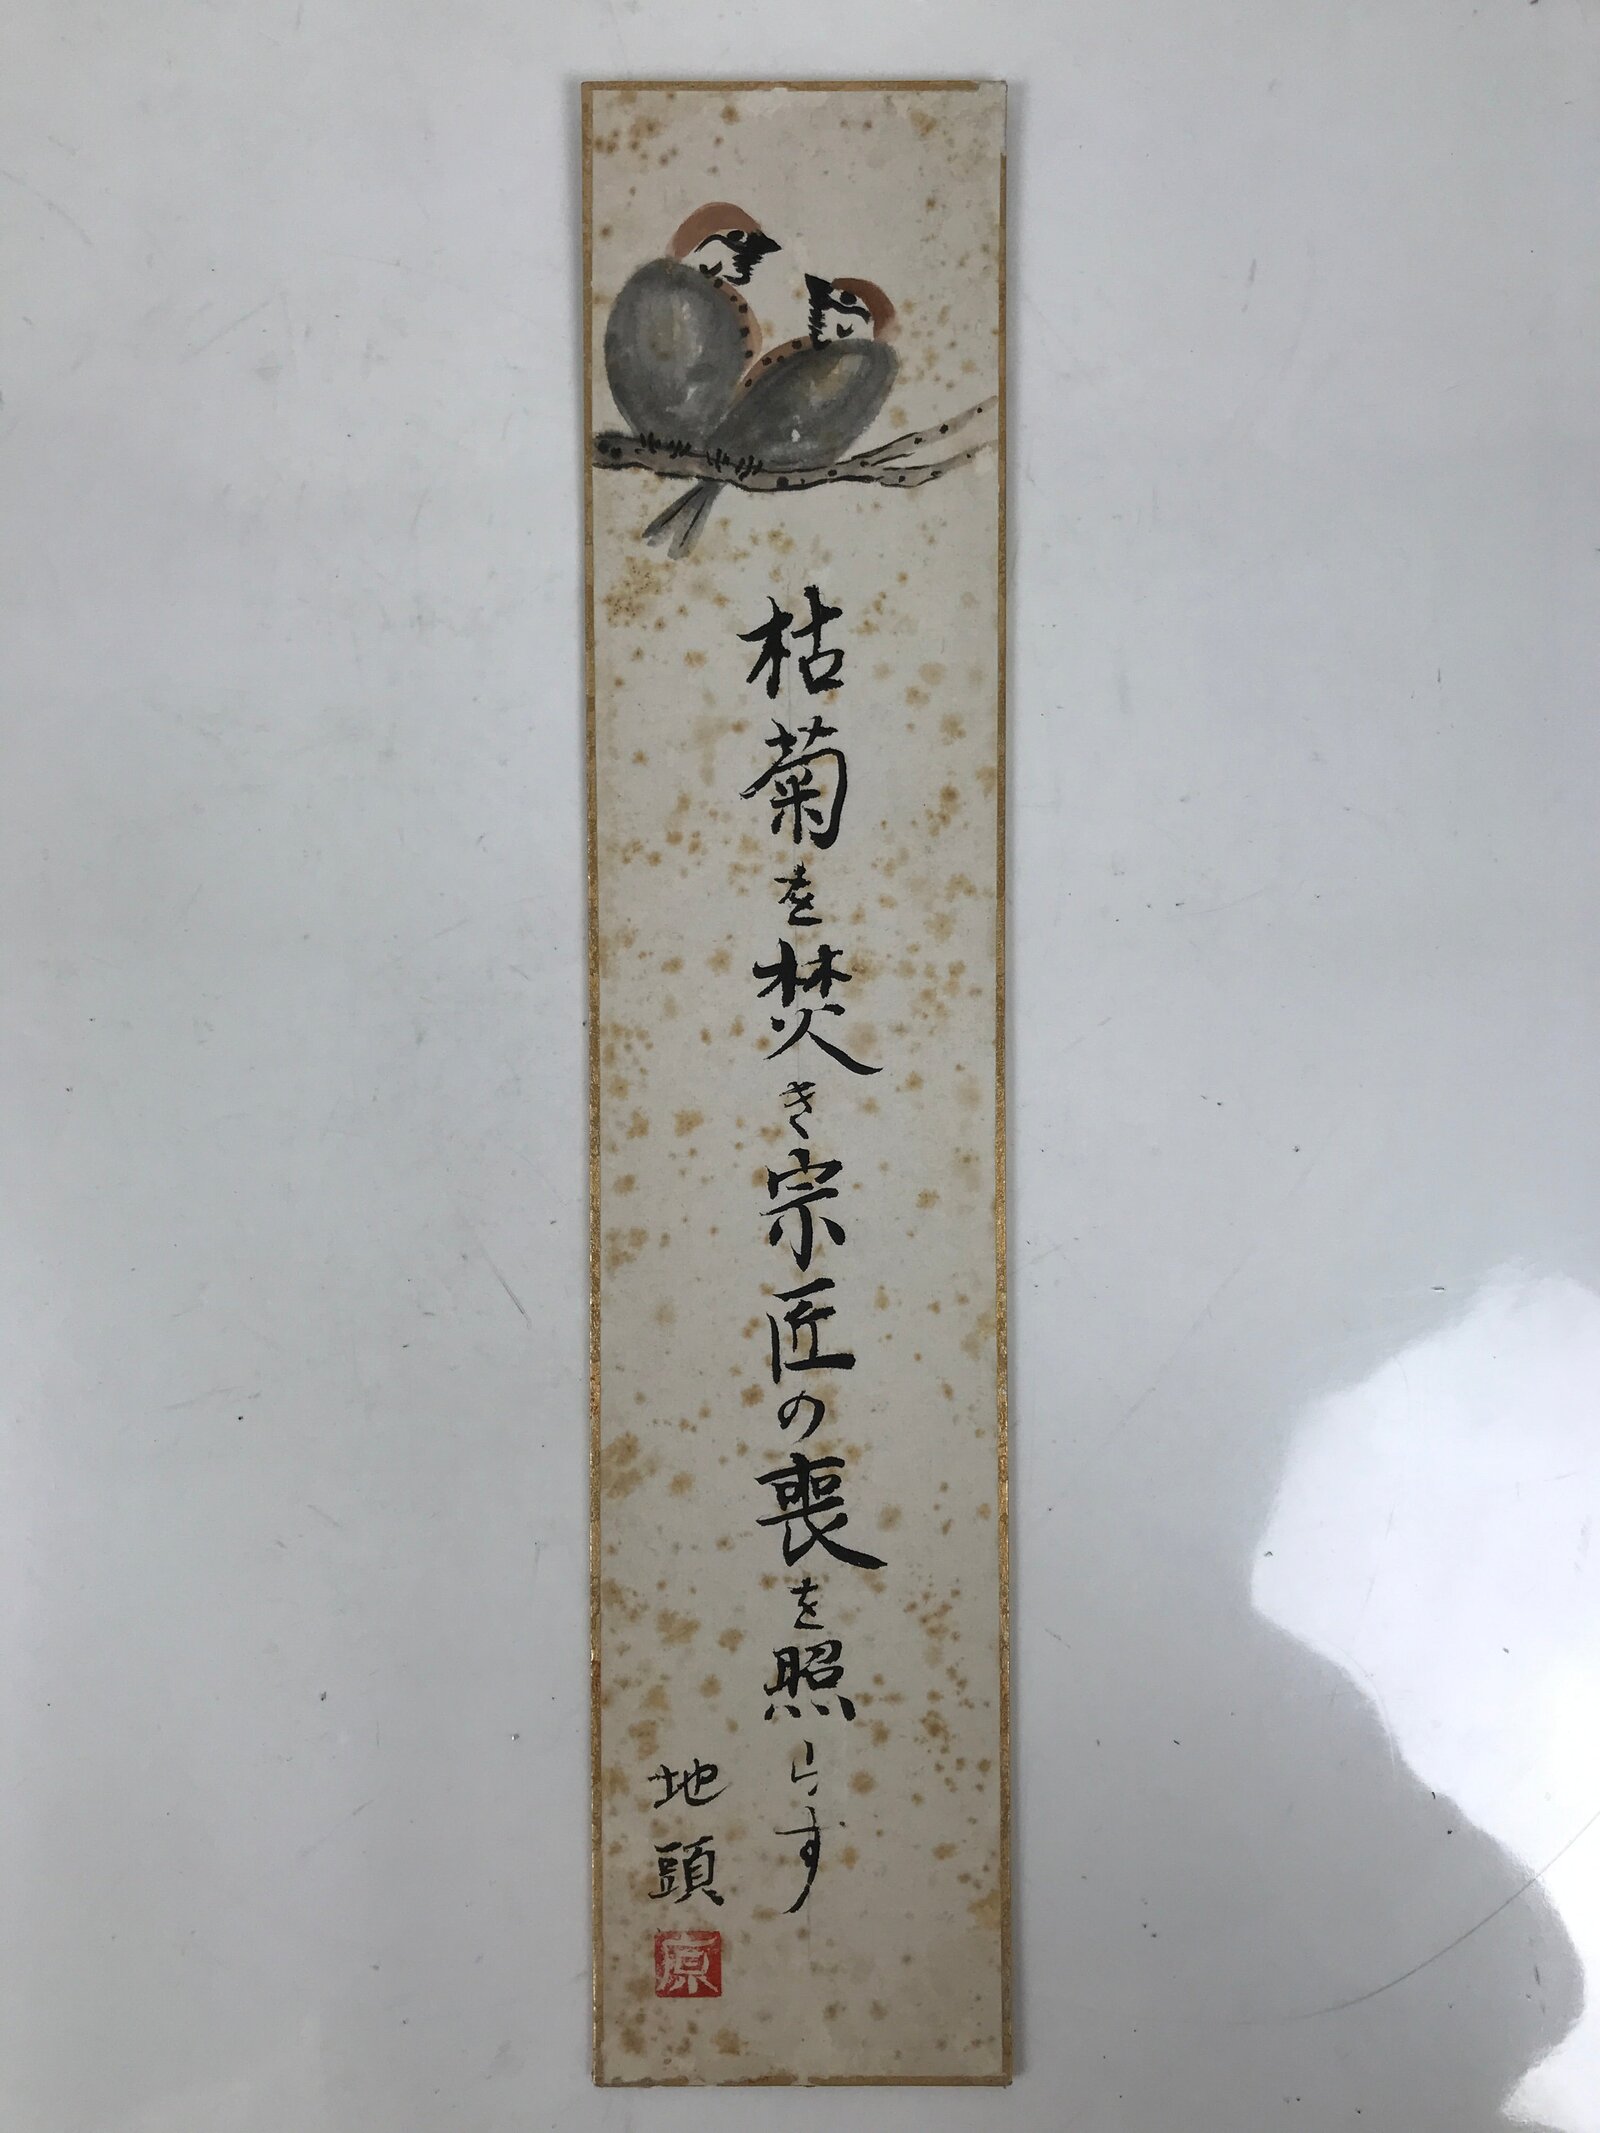 枯菊を焚き宗匠の喪を照らす
地頭
原